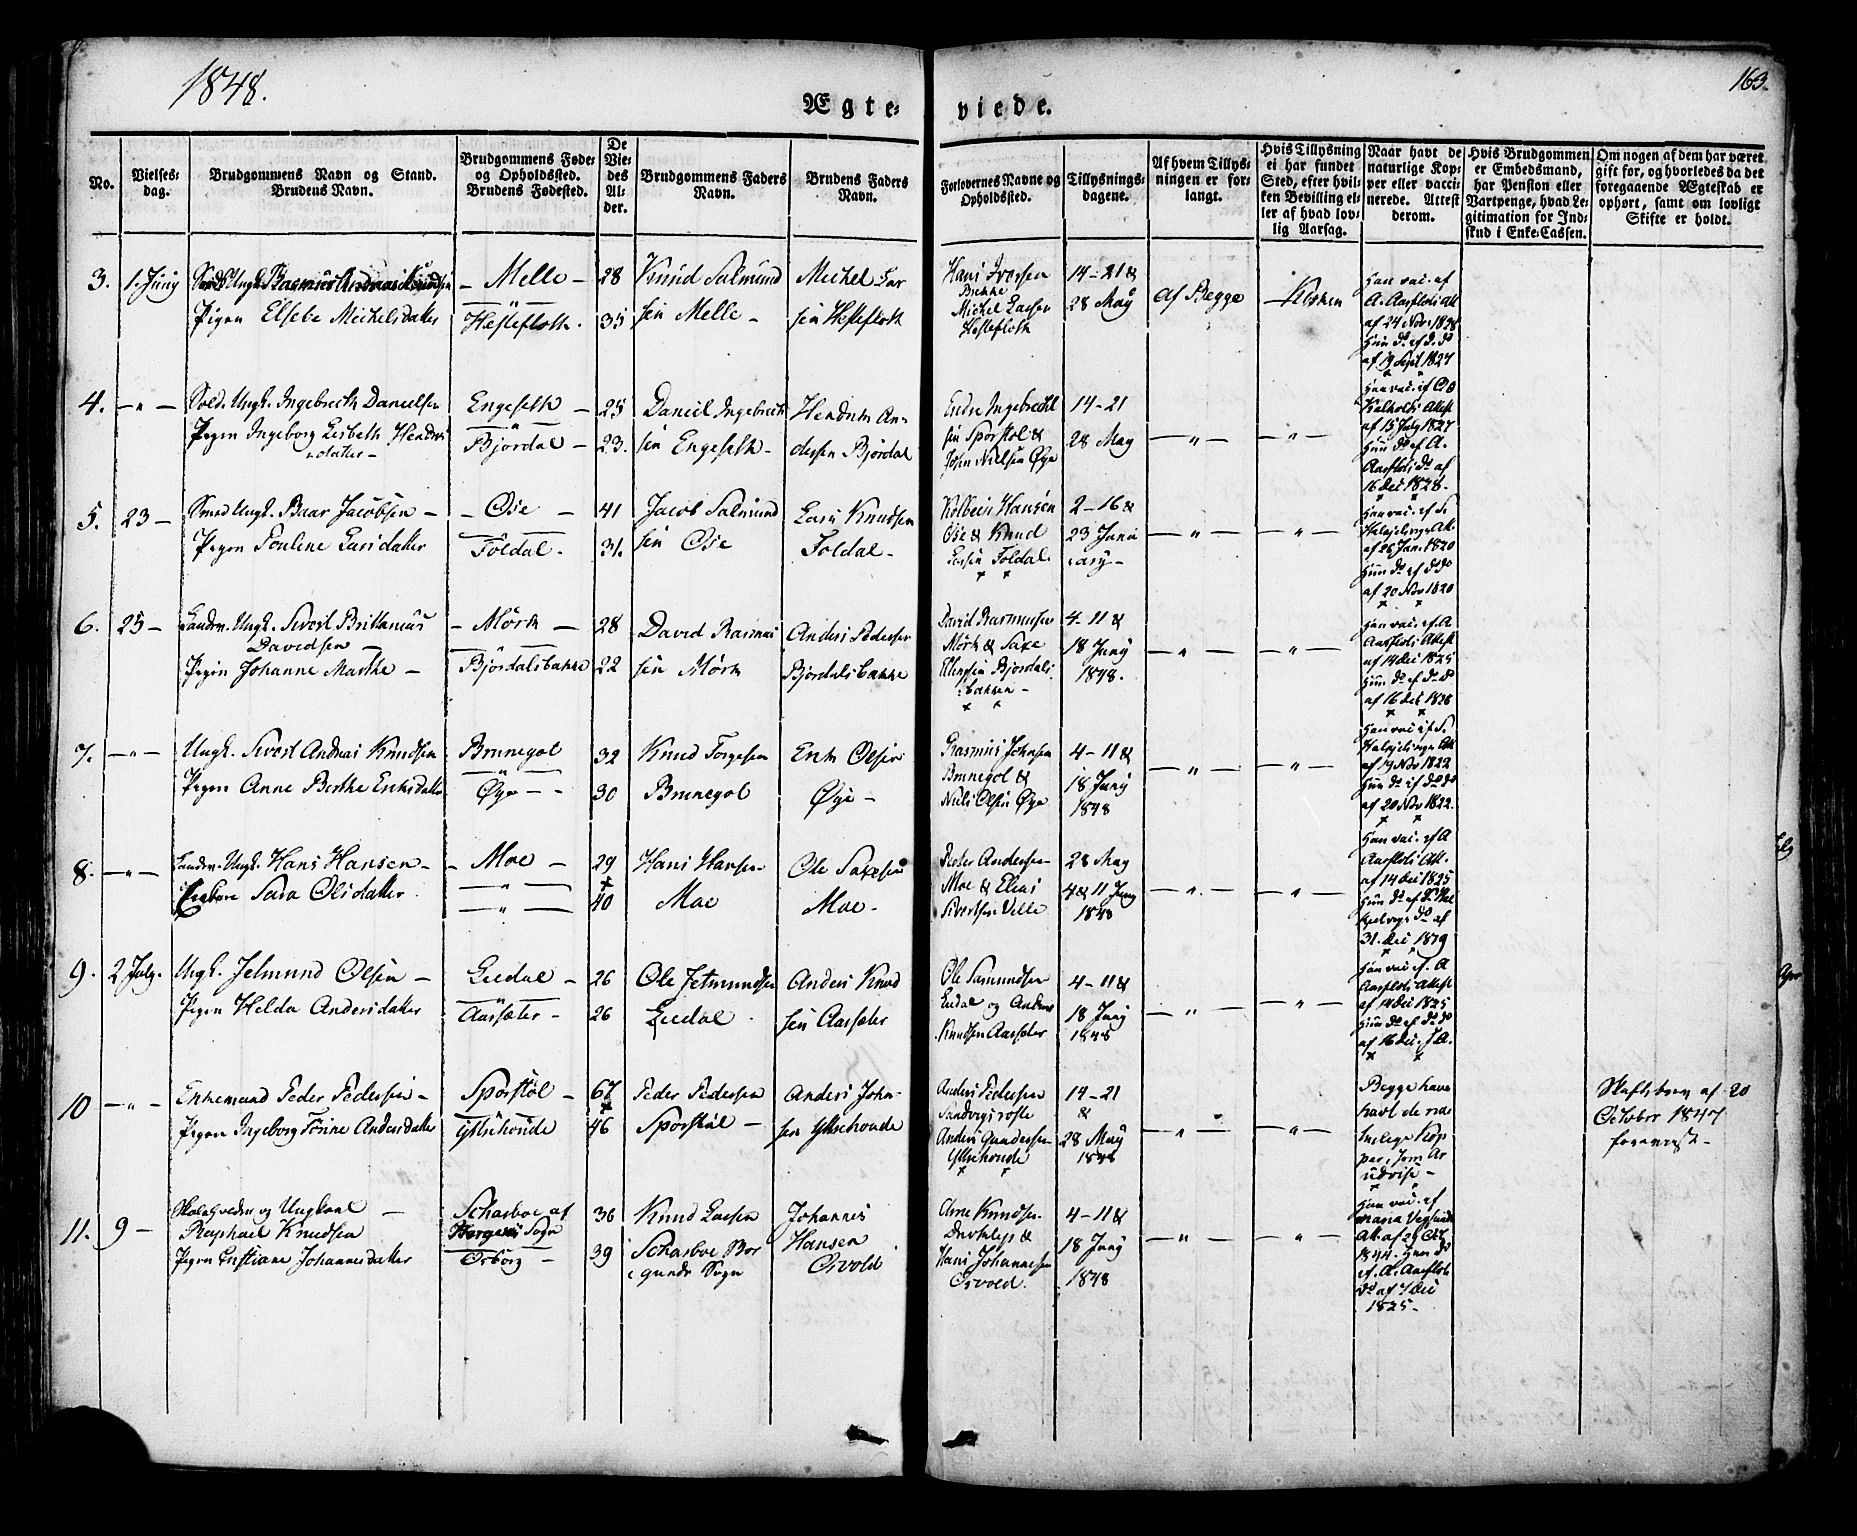 1848.
163.
Ægte- viede.
No.
Vielses-
dag.
Brudgommens Navn og Stand.
Brudens Navn.
Brudgommens Føde-
og Opholdssted.
Brudens Fødested.
De
Vie-
des
Al-
der.
Brudgommens Faders
Navn.
Brudens Faders
Navn.
Forlovernes Navne og
Opholdssted.
Tillysnings-
dagene.
Af hvem Tillys-
ningen er for-
langt.
Hvis Tillysning
ei har fundet
Sted, efter hvil-
ken Bevilling el-
ler af hvad lov-
lig Aarsag.
Naar havt de
naturlige Kop-
per eller vacci-
nerede. Attest
derom.
Hvis Brudgommen
er Embedsmand,
har Pension eller
Vartpenge, hvad Le-
gitimation for Ind-
skud i Enke-Cassen.
Om nogen af dem har været
gift før, og hvorledes da det
foregaaende Ægteskab er
ophørt, samt om lovligt
Skifte er holdt.
3. 1. Juny
Ungk. Rasmus Andreas Knudsen
Pigen Elsebe Michelsdatter
– Melle –
Hestefloth.
28
35
Knud Salmund
sen Melle –
Michel Lar
sen Hestefloth
Hans Iversen
Michel Larsen
Hestefloth
14–21 &
28 May
Af Begge
–Kirken
Han vac. ef
A. Aarflots Att
af 24 Nov. 1828
Hun do ef do do
af 19 Sept 1827
4. –"–
Sold. Ungk. Ingebrecth Danielsen
Pigen Ingeborg Lisbeth Hendrics
datter –
Engeseth –
"
Bjørdal –
25
23.
Daniel Ingebrecth
sen Engeseth –
Hendrich An-
dersen Bjørdal
Endre Ingebrecht
sen Sporstøl &
John Nielsen Øye
14–21
28 May
–"–
–"–
Han vac. ef
af 15 July 1827
Hun do ef A.
Aarflots do af
16 Dec 1828.
5. 23 –
Ungk. Baar Jacobsen –
Pigen Pouline Larsdatter
– Ose –
Foldal –
41
31.
Jacob Salmund
sen Ose
Lars Knudsen
Foldal –
Kolbein Hansen
Ose & Knud
Larsen Foldal
2–16 &
23 Janu
ary –
–"–
–"–
Han vac. ef
af 26 Jan. 1820
Hun do ef do do
af 20 Nov 1820
6. 25 –
Landev. Ungk. Sivert Brittanius
Davidsen –
Pigen Johanne Marthe –
– Mörk –
Bjørdalsbakke
28
22
David Rasmus
sen Mörk
Anders Pedersen
Bjørdalsbakke
David Rasmussen
Mörk & Saxe
Bjordals
bakken –
4–11 &
18 Juny
1848.
–"–
–"–
Han vac. ef A
Aarflots Attest
af 14 Dec 1825
Hun do ef do do
af 16 Dec 1828
7. –"–
Ungk. Sivert Andreas Knudsen
Pigen Anne Berthe Ericksdatter
Brunegot
"
Øye – –
32
30
Knud Torgersen
Brunegot
Erik Olsen
Øye –
Rasmus Johnsen
Brunegot &
Niels Olsen Øye
4–11 &
18 Juny
1848
–"–
–"–
Han vac ef
af 19 Nov 1822
Hun do ef do do
af 20 Nov 1822.
8. –"–
Landev. Ungk. Hans Hansen –
Sara Olsdatter
– Moe –
–"–
–"–
29
40
Hans Hansen
Moe
Ole Saxesen
Moe –
Peder Andersen
Moe & Elias
Sivertsen Velle
28 May
4 & 11 Juny
1848
–"–
–"–
Han vac. ef A
Aarflots Att.
af 14 Dec 1825
Hun do ef
do af
31. Dec 1819
9. 2 July.
Ungk. Jetmund Olsen –
Pigen Helda Andersdatter
Eiedal –
Aarsæter –
26
26
Ole Jetmundsen
Eiedal
Anders Knud
sen Aarsæter
Ole Samundsen
Eiedal og Anders
Knudsen Aarsæter
4–11 &
18 Juny
1848
–"–
–"–
Han vac ef. A
Aarflots Attest
af 14 Dec 1825
Hun do ef do do
af 16 Dec. s A.
10 –"–
Enkemand Peder Pedersen –
Pigen Ingeborg Torine Andersdatter
Sporstøl –
Yttrehovde
67
46
Peder Pedersen
Sporstøl –
Anders John-
sen Yttrehovde
Anders Pedersen
Anders Gundersen
Yttrehovde
14–21
&
28 May
1848
–"–
–"–
Begge have
havt de na
turlige Kop
per, som Ar
udvise –
Skiftebrev af 20
October 1847
foreviist –
11. 9 –
Skoleholder og Ungkarl –
Raphael Knudsen
Pigen Cristiane Johannesdatter
Scharboe af
Borgens Sogn
Orborg –
36
39
Knud Larsen
Scharboe Bor
gunds Sogn
Johannes
Hansen
Orvold
Arne Knudsen
&
Hans Johannesen
Orvold.
4–11 &
18 Juny
1848
–"–
–"–
Han vac. ef
Maria
Att. af 29 Oct
1844. Hun do
ef. A. Aarflots
do af 7 Dec
1825 –